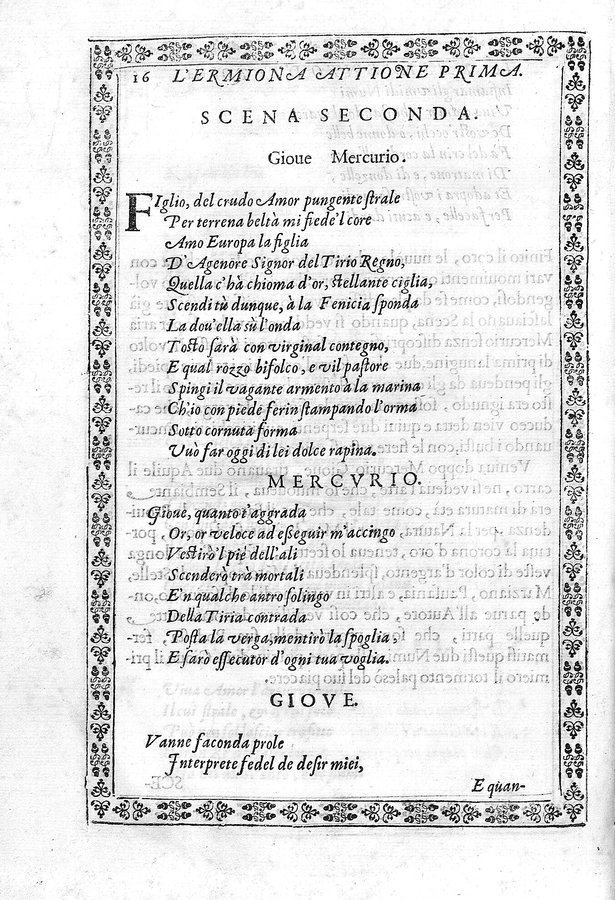 16 L'ERMIONA ATTIONE PRIMA.
SCENA SECONDA.
Gioue Mercurio.
FIglio, del crudo Amor pungente strale
Per terrena beltà mi fiede'l core
Amo Europa la figlia
D'Agenore Signor del Tirio Regno,
Quella c'hà chioma d'or, stellante ciglia,
Scendi tù dunque, à la Fenicia sponda
La dou'ella sù l'onda
Tosto sarà con virginal contegno,
E qual rozzo bifolco, e vil pastore
Spingi il vagante armento à la marina
Ch'io con piede ferin stampando l'orma
Sotto cornuta forma
Vuò far oggi di lei dolce rapina.
MERCVRIO.
Gioue, quanto t'aggrada
Or, or veloce ad esseguir m'accingo
Vestirò'l piè dell'ali
Scenderò trà mortali
E'n qualche antro solingo
Della Tiria contrada
Posta la verga, mentirò la spoglia,
E sarò essecutor d'ogni tua voglia.
GIOVE.
Vanne faconda prole
Interprete fedel de desir miei,
E quan-